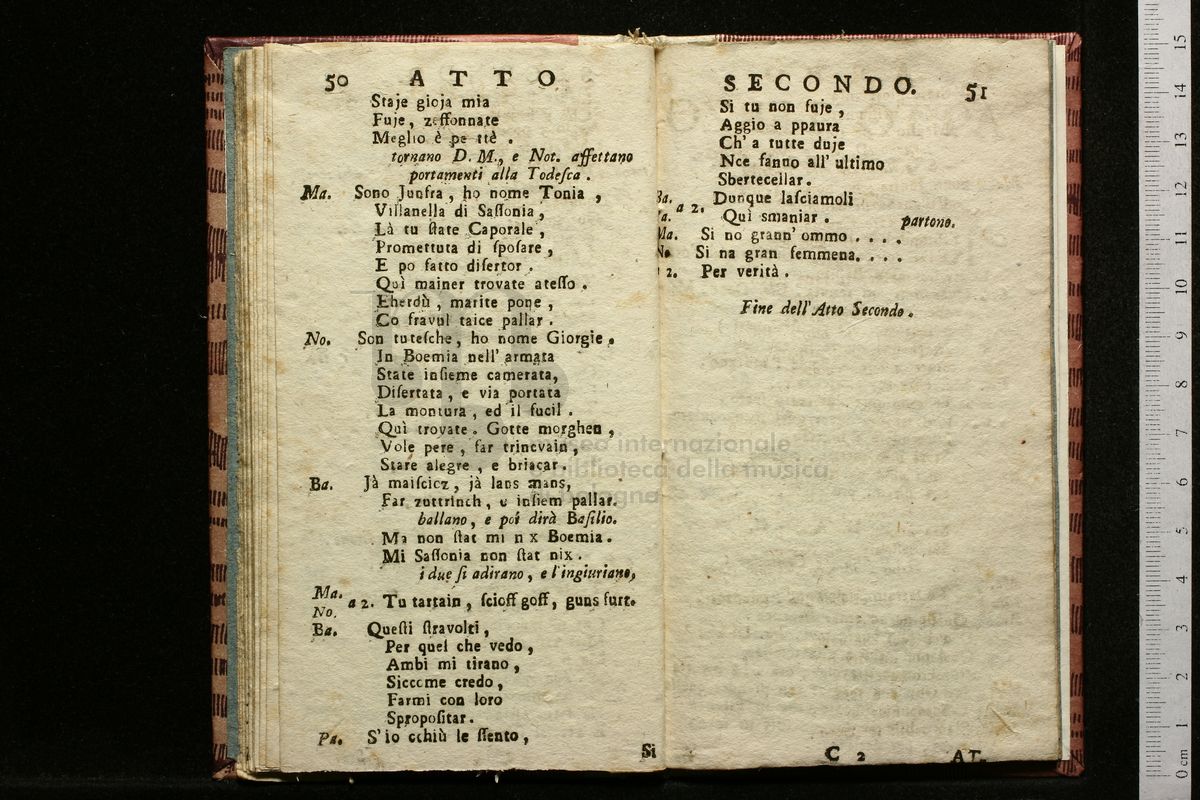 50 ATTO
Staje gioja mia
Fuje, zeffonnate
Meglio è pe ttè .
tornano D. M., e Not. affettano
portamenti alla Todeſca .
Ma. Sono Junfra, ho nome Tonia ,
Villanella di Saſſonia ,
Là tu ſtate Caporale ,
Promettuta di ſpoſare ,
E po fatto diſertor .
Quì mainer trovate ateſſo .
Eherdù , marite pone ,
Co fravul taice pallar .
No. Son tuteſche, ho nome Giorgie .
In Boemia nell' armata
State inſieme camerata,
Diſertata, e via portata
La montura , ed il fucil .
Quì trovate . Gotte morghen ,
Vole pere , far trinevain ,
Stare alegre , e briacar .
Ba. Jà maiſcicz , jà lans mans,
Far zuttrinch, e inſiem pallar.
ballano, e poi dirà Baſilio.
Ma non ſtat mi n x Boemia .
Mi Saſſonia non ſtat nix .
i due ſi adirano, e l'ingiuriano,
Ma.
No. a 2. Tu tartain, ſcioff goff, guns furt.
Ba. Queſti ſtravolti ,
Per quel che vedo ,
Ambi mi tirano ,
Siccome credo ,
Farmi con loro
Spropoſitar .
Pa. S'io cchiù le ſſento ,
Si
SECONDO. 51
Si tu non fuje ,
Aggio a ppaura
Ch' a tutte duje
Nce fanno all' ultimo
Sbertecellar .
Ba.
Pa. a 2. Dunque laſciamoli
Quì smaniar . partono.
Ma. Si no grann' ommo . . . .
No. Si na gran femmena. . . .
a 2. Per verità .
Fine dell' Atto Secondo .
C 2 AT-
museo internazionale
e biblioteca della musica
bologna
15
14
13
12
11
10
9
8
7
6
5
4
3
2
1
0 cm